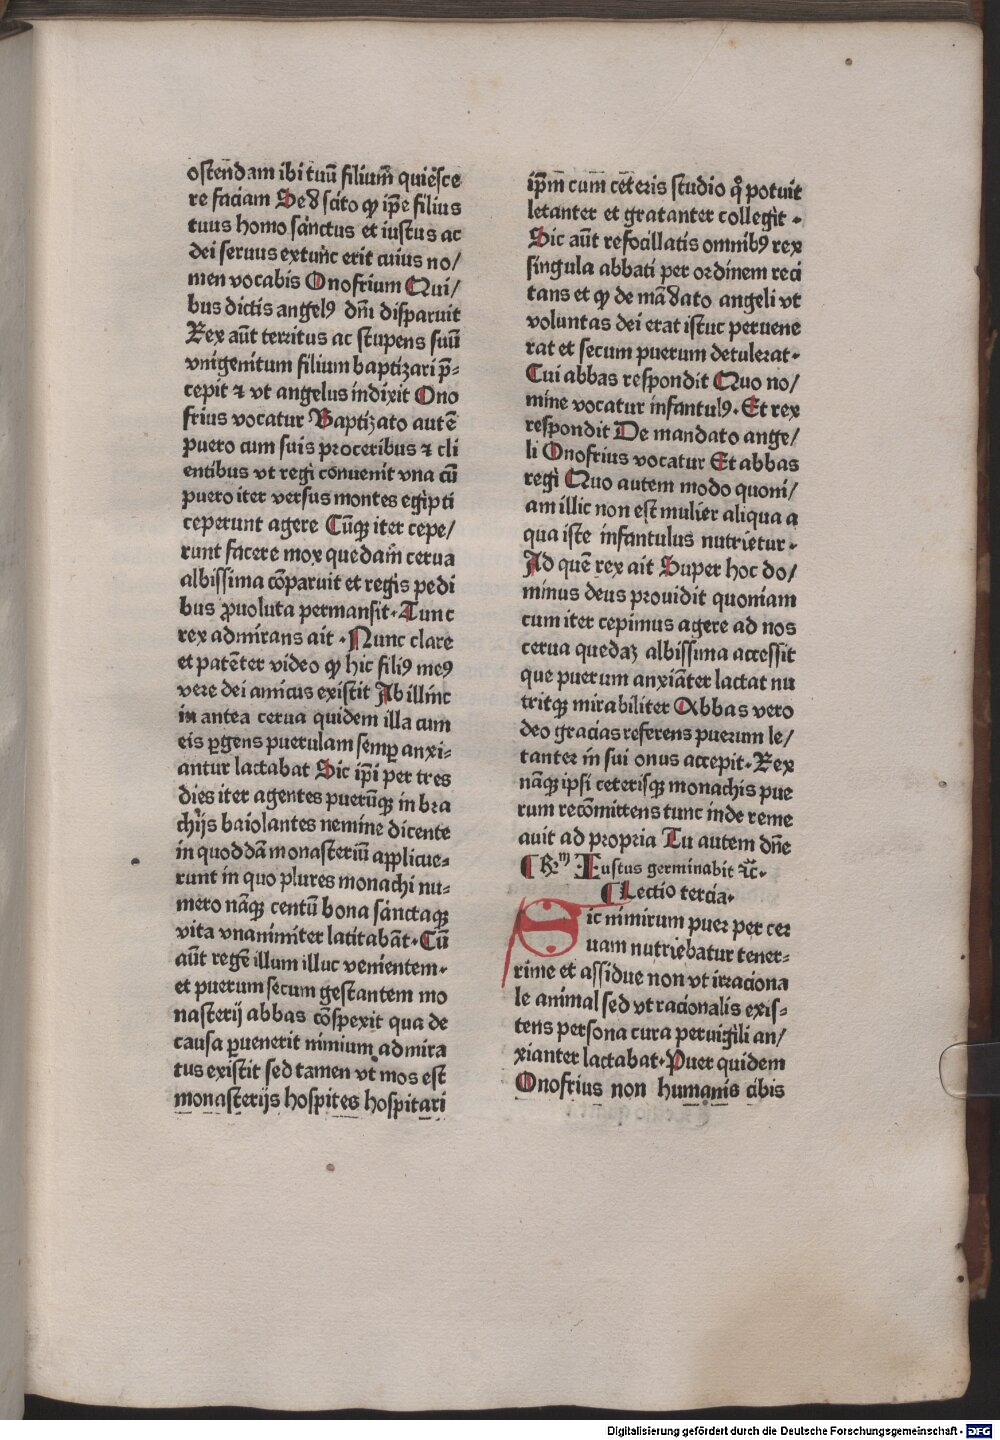 ostendam ibi tuū filium̄ quiesce
re faciam Sed scito ꝙ ip̄e filius
tuus homo sanctus et iustus ac
dei seruus extūc erit cuius no/
men vocabis Onofrium Qui/
bus dictis angelꝰ dn̄i disparuit
Rex aūt territus ac stupens suū
vnigenitum filium baptizari p̄⸗
cepit ⁊ vt angelus indixit Ono
frius vocatur Baptizato autē
puero cum suis proceribus ⁊ cli
entibus vt regi conuenit vna cū
puero iter versus montes egipti
ceperunt agere Cūqꝫ iter cepe/
runt facere mox quedam̄ cerua
albissima cōparuit et regis pedi
bus ꝓuoluta permansit. Tunc
rex admirans ait . Nunc clare
et patēter video ꝙ hic filiꝰ meꝰ
vere dei amicus existit Ab illinc
in antea cerua quidem illa cum
eis ꝑgens puerulam semꝑ anxi⸗
antur lactabat Sic ip̄i per tres
dies iter agentes puerūqꝫ in bra
chijs baiolantes nemine dicente
in quoddā monasteriū applicue⸗
runt in quo plures monachi nu⸗
mero nāqꝫ centū bona sanctaqꝫ
vita vnanimiter latitabāt. Cū
aūt regē illum illuc venientem.
et puerum secum gestantem mo
nasterij abbas cōspexit qua de
causa ꝑuenerit nimium admira
tus existit sed tamen vt mos est
monasterijs hospites hospitari
ip̄m cum ceteris studio qͦ potuit
letanter et gratanter collegit .
Sic aūt refocillatis omnibꝰ rex
singula abbati per ordinem reci
tans et ꝙ de mādato angeli vt
voluntas dei erat istuc peruene
rat et secum puerum detulerat.
Cui abbas respondit Quo no/
mine vocatur infantulꝰ. Et rex
respondit De mandato ange/
li Onofrius vocatur Et abbas
regi Quo autem modo quoni/
am illic non est mulier aliqua a
qua iste infantulus nutrietur.
Ad quē rex ait Super hoc do/
minus deus prouidit quoniam
cum iter cepimus agere ad nos
cerua quedaꝫ albissima accessit
que puerum anxiāter lactat nu
tritqꝫ mirabiliter Abbas vero
deo gracias referens puerum le/
tanter in sui onus accepit. Rex
nāqꝫ ipsi ceterisqꝫ monachis pue
rum recōmittens tunc inde reme
auit ad propria Tu autem dn̄e
Iustus germinabit ⁊c̄.
Lectio tercia.
Sic nimirum puer per cer
uam nutriebatur tener⸗
rime et assidue non vt irraciona
le animal sed vt racionalis exis⸗
tens persona cura peruigili an/
xianter lactabat. Puer quidem
Onofrius non humanis cibis
Digitalisierung gefördert durch die Deutsche Forschungsgemeinschaft - DFG